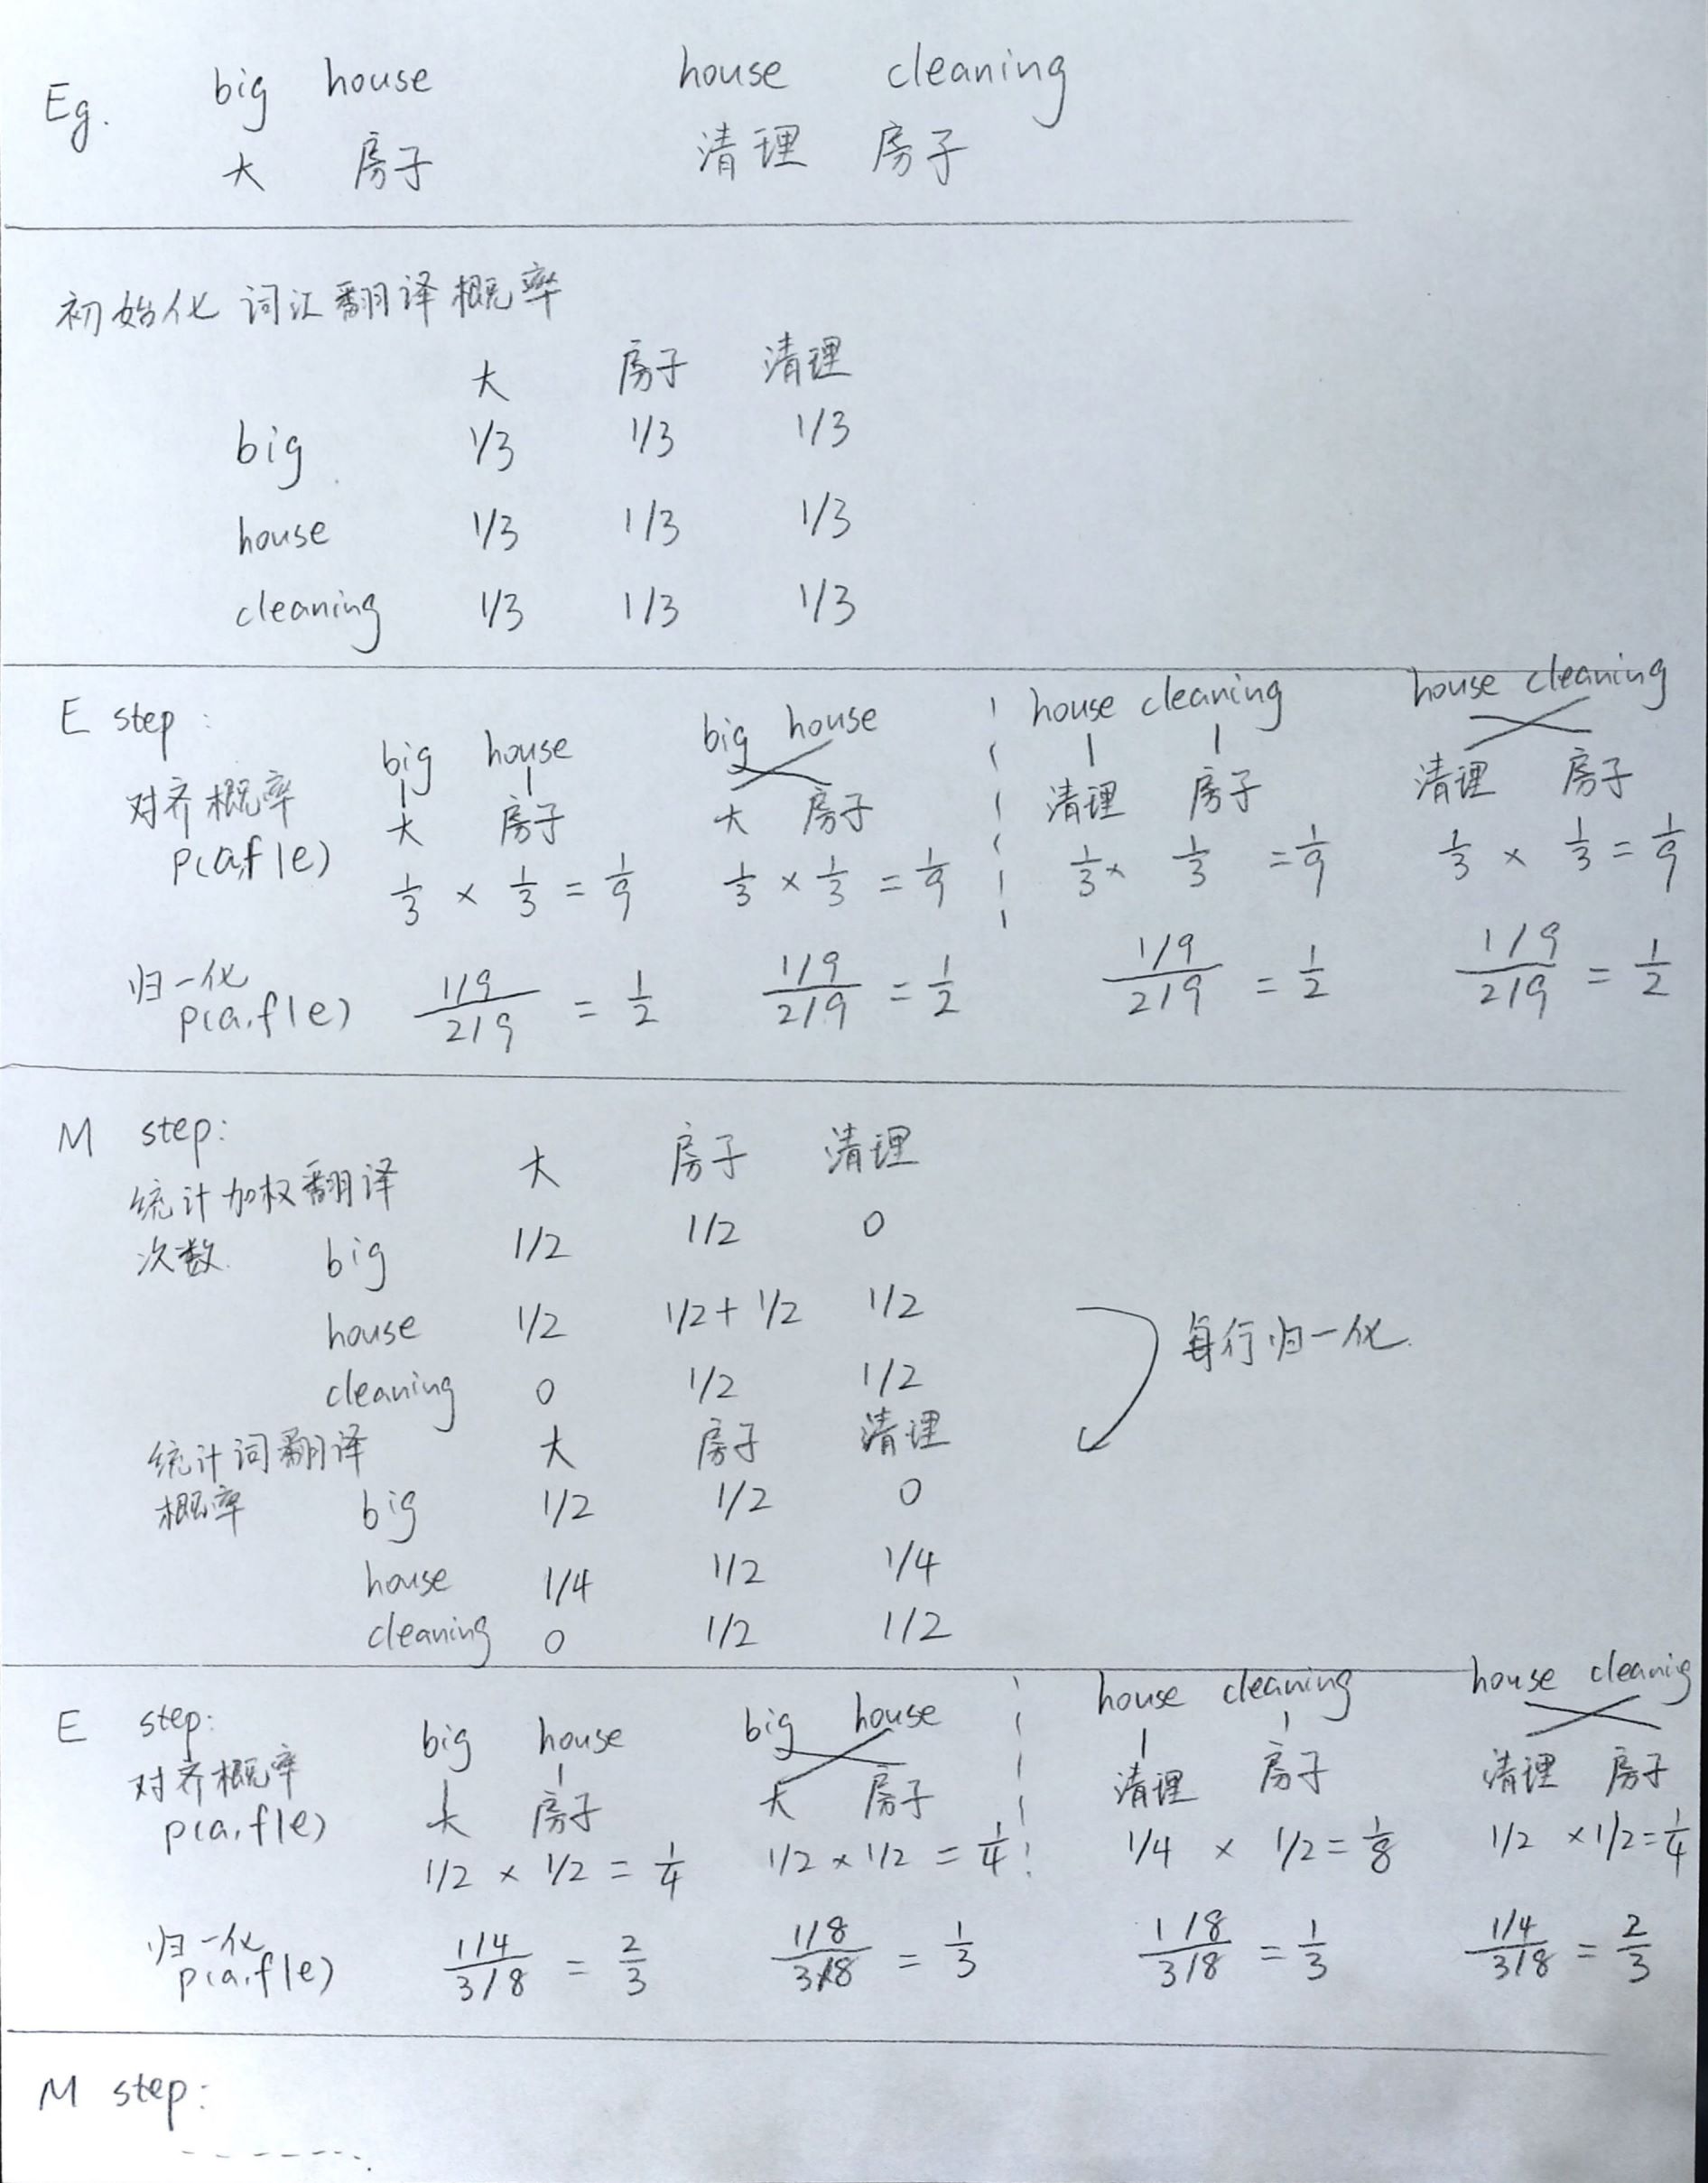 Eg. big house house cleaning
大 房子 清理 房子
初始化 词汇翻译概率
大 房子 清理
big 1/3 1/3 1/3
house 1/3 1/3 1/3
cleaning 1/3 1/3 1/3
E step: big house big house house cleaning house cleaning
对齐概率 大 房子 大 房子 清理 房子 清理 房子
p(a,f|e) 1/3 × 1/3 = 1/9 1/3 × 1/3 = 1/9 1/3 × 1/3 = 1/9 1/3 × 1/3 = 1/9
归一化
p(a,f|e) 1/9 / 2/9 = 1/2 1/9 / 2/9 = 1/2 1/9 / 2/9 = 1/2 1/9 / 2/9 = 1/2
M step:
大 房子 清理
统计加权翻译
次数. big 1/2 1/2 0
house 1/2 1/2+1/2 1/2 每行归一化.
cleaning 0 1/2 1/2
统计词翻译 大 房子 清理
概率 big 1/2 1/2 0
house 1/4 1/2 1/4
cleaning 0 1/2 1/2
E step: big house big house house cleaning house cleanig
对齐概率 大 房子 大 房子 清理 房子 清理 房子
p(a,f|e) 1/2 × 1/2 = 1/4 1/2 × 1/2 = 1/4 1/4 × 1/2 = 1/8 1/2 × 1/2 = 1/4
归一化
p(a,f|e) 1/4 / 3/8 = 2/3 1/8 / 3/8 = 1/3 1/8 / 3/8 = 1/3 1/4 / 3/8 = 2/3
M step: